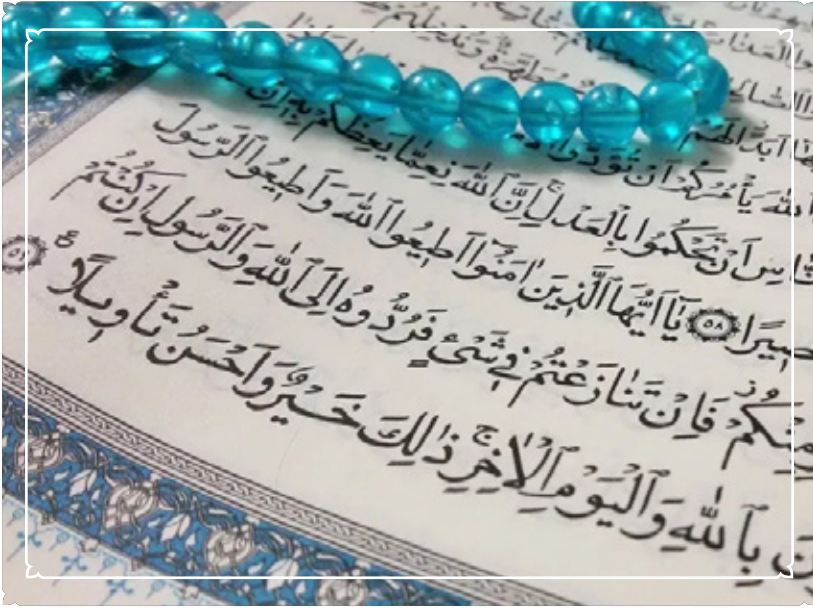 مُطَهَّرَةٌ وَنُدْخِلُهُمْ
اَبَدًا لَهُمْ
اللّٰهَ يَأْمُرُكُمْ اَنْ تُؤَدُّوا
اَنْ تَحْكُمُوا بِالْعَدْلِ اِنَّ اللّٰهَ نِعِمَّا يَعِظُكُمْ بِهِ اِنَّ
بَصِيرًا ٥٨ يَا اَيُّهَا الَّذِينَ اٰمَنُوا اَطِيعُوا اللّٰهَ وَاَطِيعُوا الرَّسُولَ
مِنْكُمْ فَاِنْ تَنَازَعْتُمْ فِي شَيْءٍ فَرُدُّوهُ اِلَى اللّٰهِ وَالرَّسُولِ اِنْ كُنْتُمْ
بِاللّٰهِ وَالْيَوْمِ الْاٰخِرِ ذٰلِكَ خَيْرٌ وَاَحْسَنُ تَأْوِيلًا ٥٩